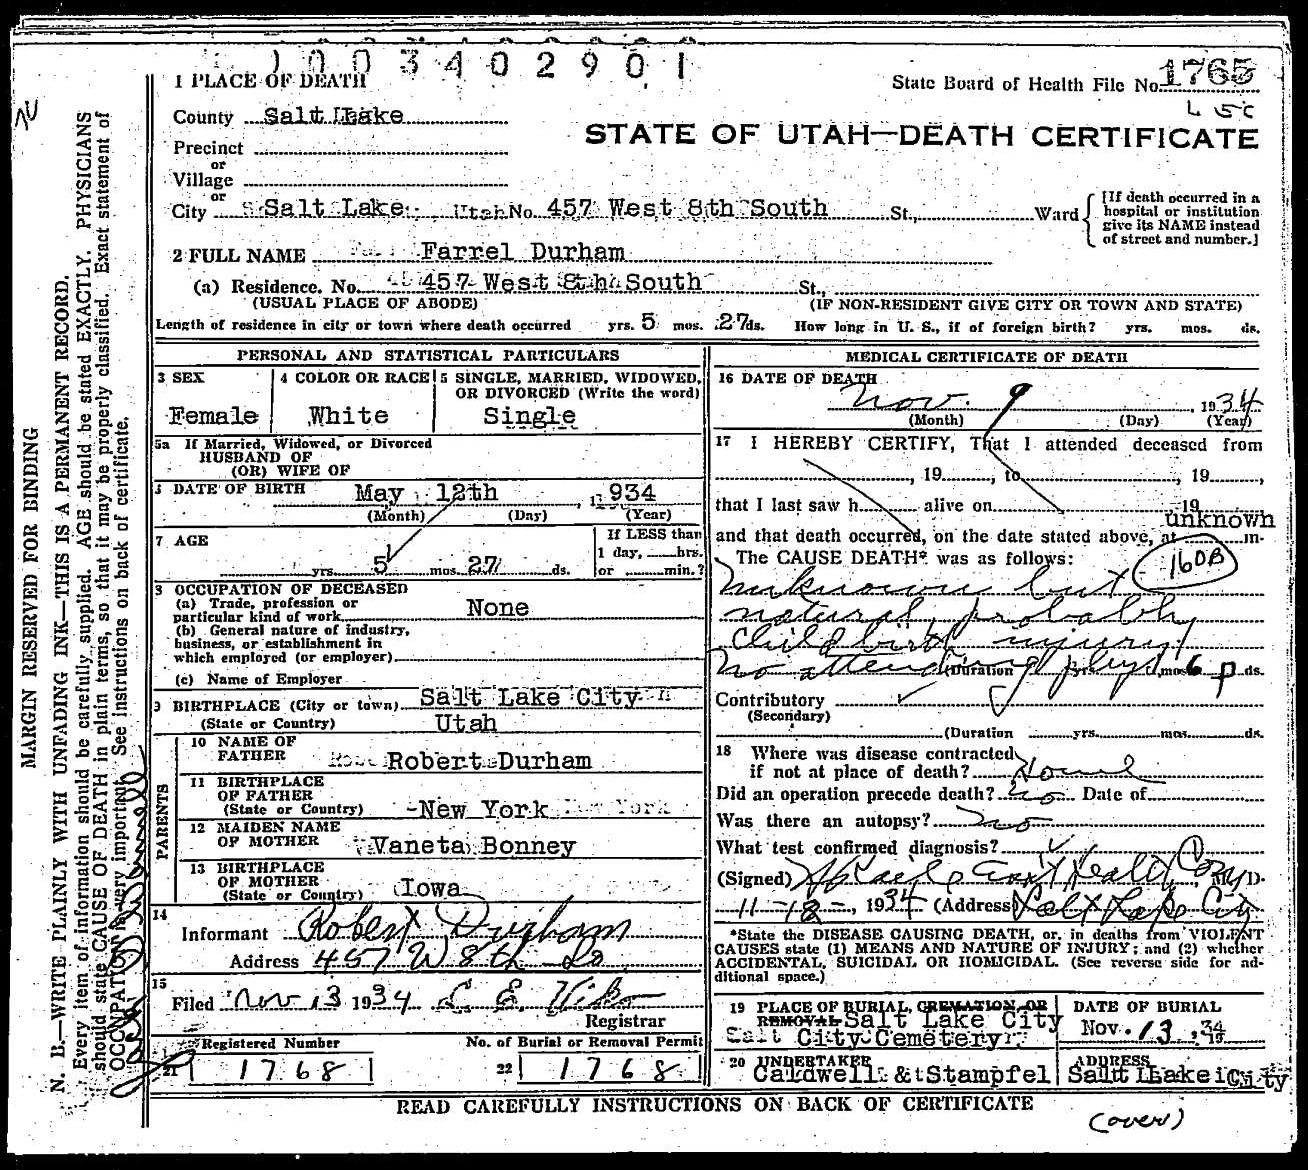 1003402901
1 PLACE OF DEATH
State Board of Health File No. 1765
County Salt Lake
STATE OF UTAH—DEATH CERTIFICATE
Precinct
or
Village
or
City Salt Lake Utah No. 457 West 8th South St., Ward
[If death occurred in a
hospital or institution
give its NAME instead
of street and number.]
2 FULL NAME Farrel Durham
(a) Residence. No. 457 West 8th South St.,
(USUAL PLACE OF ABODE) (IF NON-RESIDENT GIVE CITY OR TOWN AND STATE)
Length of residence in city or town where death occurred yrs. 5 mos. 27 ds. How long in U. S., if of foreign birth? yrs. mos. ds.
MARGIN RESERVED FOR BINDING
N. B.—WRITE PLAINLY WITH UNFADING INK—THIS IS A PERMANENT RECORD.
Every item of information should be carefully supplied. AGE should be stated EXACTLY. PHYSICIANS
should state CAUSE OF DEATH in plain terms, so that it may be properly classified. Exact statement of
OCCUPATION is very important. See instructions on back of certificate.
PERSONAL AND STATISTICAL PARTICULARS
3 SEX
Female
4 COLOR OR RACE
White
5 SINGLE, MARRIED, WIDOWED,
OR DIVORCED (Write the word)
Single
5a If Married, Widowed, or Divorced
HUSBAND OF
(OR) WIFE OF
DATE OF BIRTH May 12th, 1934
(Month) (Day) (Year)
7 AGE
yrs. 5 mos. 27 ds.
If LESS than
1 day, hrs.
or min.?
OCCUPATION OF DECEASED
(a) Trade, profession or
particular kind of work None
(b) General nature of industry,
business, or establishment in
which employed (or employer)
(c) Name of Employer
BIRTHPLACE (City or town) Salt Lake City
(State or Country) Utah
PARENTS
10 NAME OF
FATHER Robert Durham
11 BIRTHPLACE
OF FATHER
(State or Country) New York
12 MAIDEN NAME
OF MOTHER Vaneta Bonney
13 BIRTHPLACE
OF MOTHER
(State or Country) Iowa
14
Informant Robert Durham
Address 457 W 8th So
15
Filed Nov 13 1934
Registrar
Registered Number
21 1768
No. of Burial or Removal Permit
22 1768
MEDICAL CERTIFICATE OF DEATH
16 DATE OF DEATH
Nov. 9, 1934
(Month) (Day) (Year)
17 I HEREBY CERTIFY, That I attended deceased from
, 19 , to , 19 ,
that I last saw h alive on 19
unknown
and that death occurred, on the date stated above, at m.
The CAUSE DEATH* was as follows: 160B
Unknown but
natural probably
Child birth injury
No attending phys (Duration yrs. mos. 6 ds.
Contributory
(Secondary)
(Duration yrs. mos. ds.
18 Where was disease contracted
if not at place of death? Home
Did an operation precede death? no Date of
Was there an autopsy? no
What test confirmed diagnosis?
(Signed) Health Com M. D.
11-12-, 1934 (Address) Salt Lake City
*State the DISEASE CAUSING DEATH, or, in deaths from VIOLENT
CAUSES state (1) MEANS AND NATURE OF INJURY; and (2) whether
ACCIDENTAL, SUICIDAL OR HOMICIDAL. (See reverse side for ad-
ditional space.)
19 PLACE OF BURIAL, CREMATION, OR
REMOVAL Salt Lake City
City Cemetery
DATE OF BURIAL
Nov. 13, 1934
20 UNDERTAKER
Caldwell & Stampfel
ADDRESS
Salt Lake City
READ CAREFULLY INSTRUCTIONS ON BACK OF CERTIFICATE
(over)